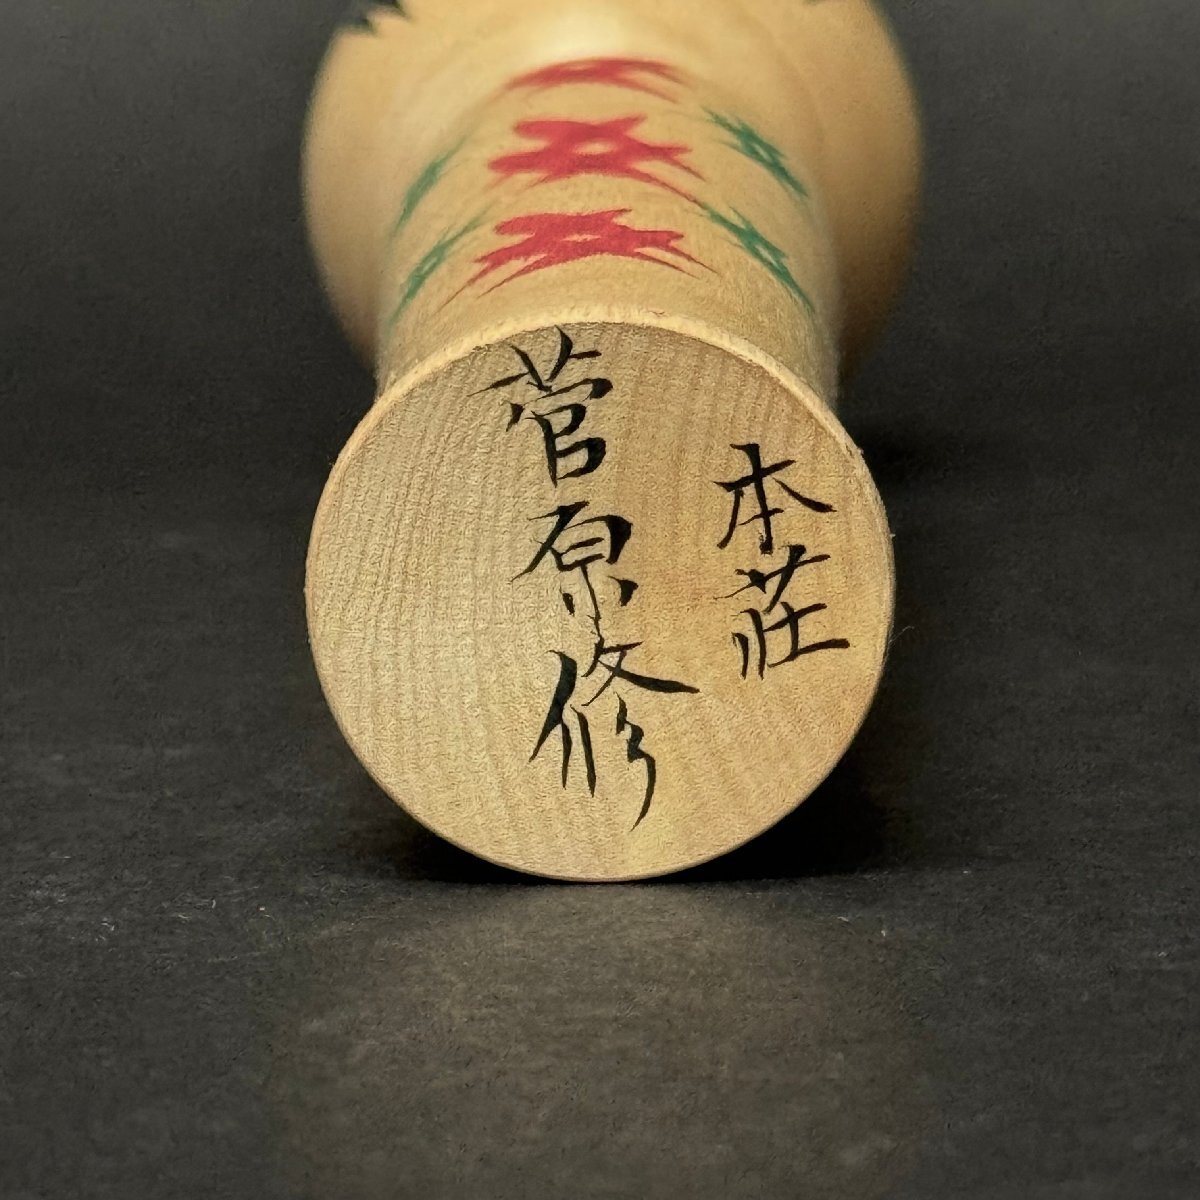 本荘
菅原修